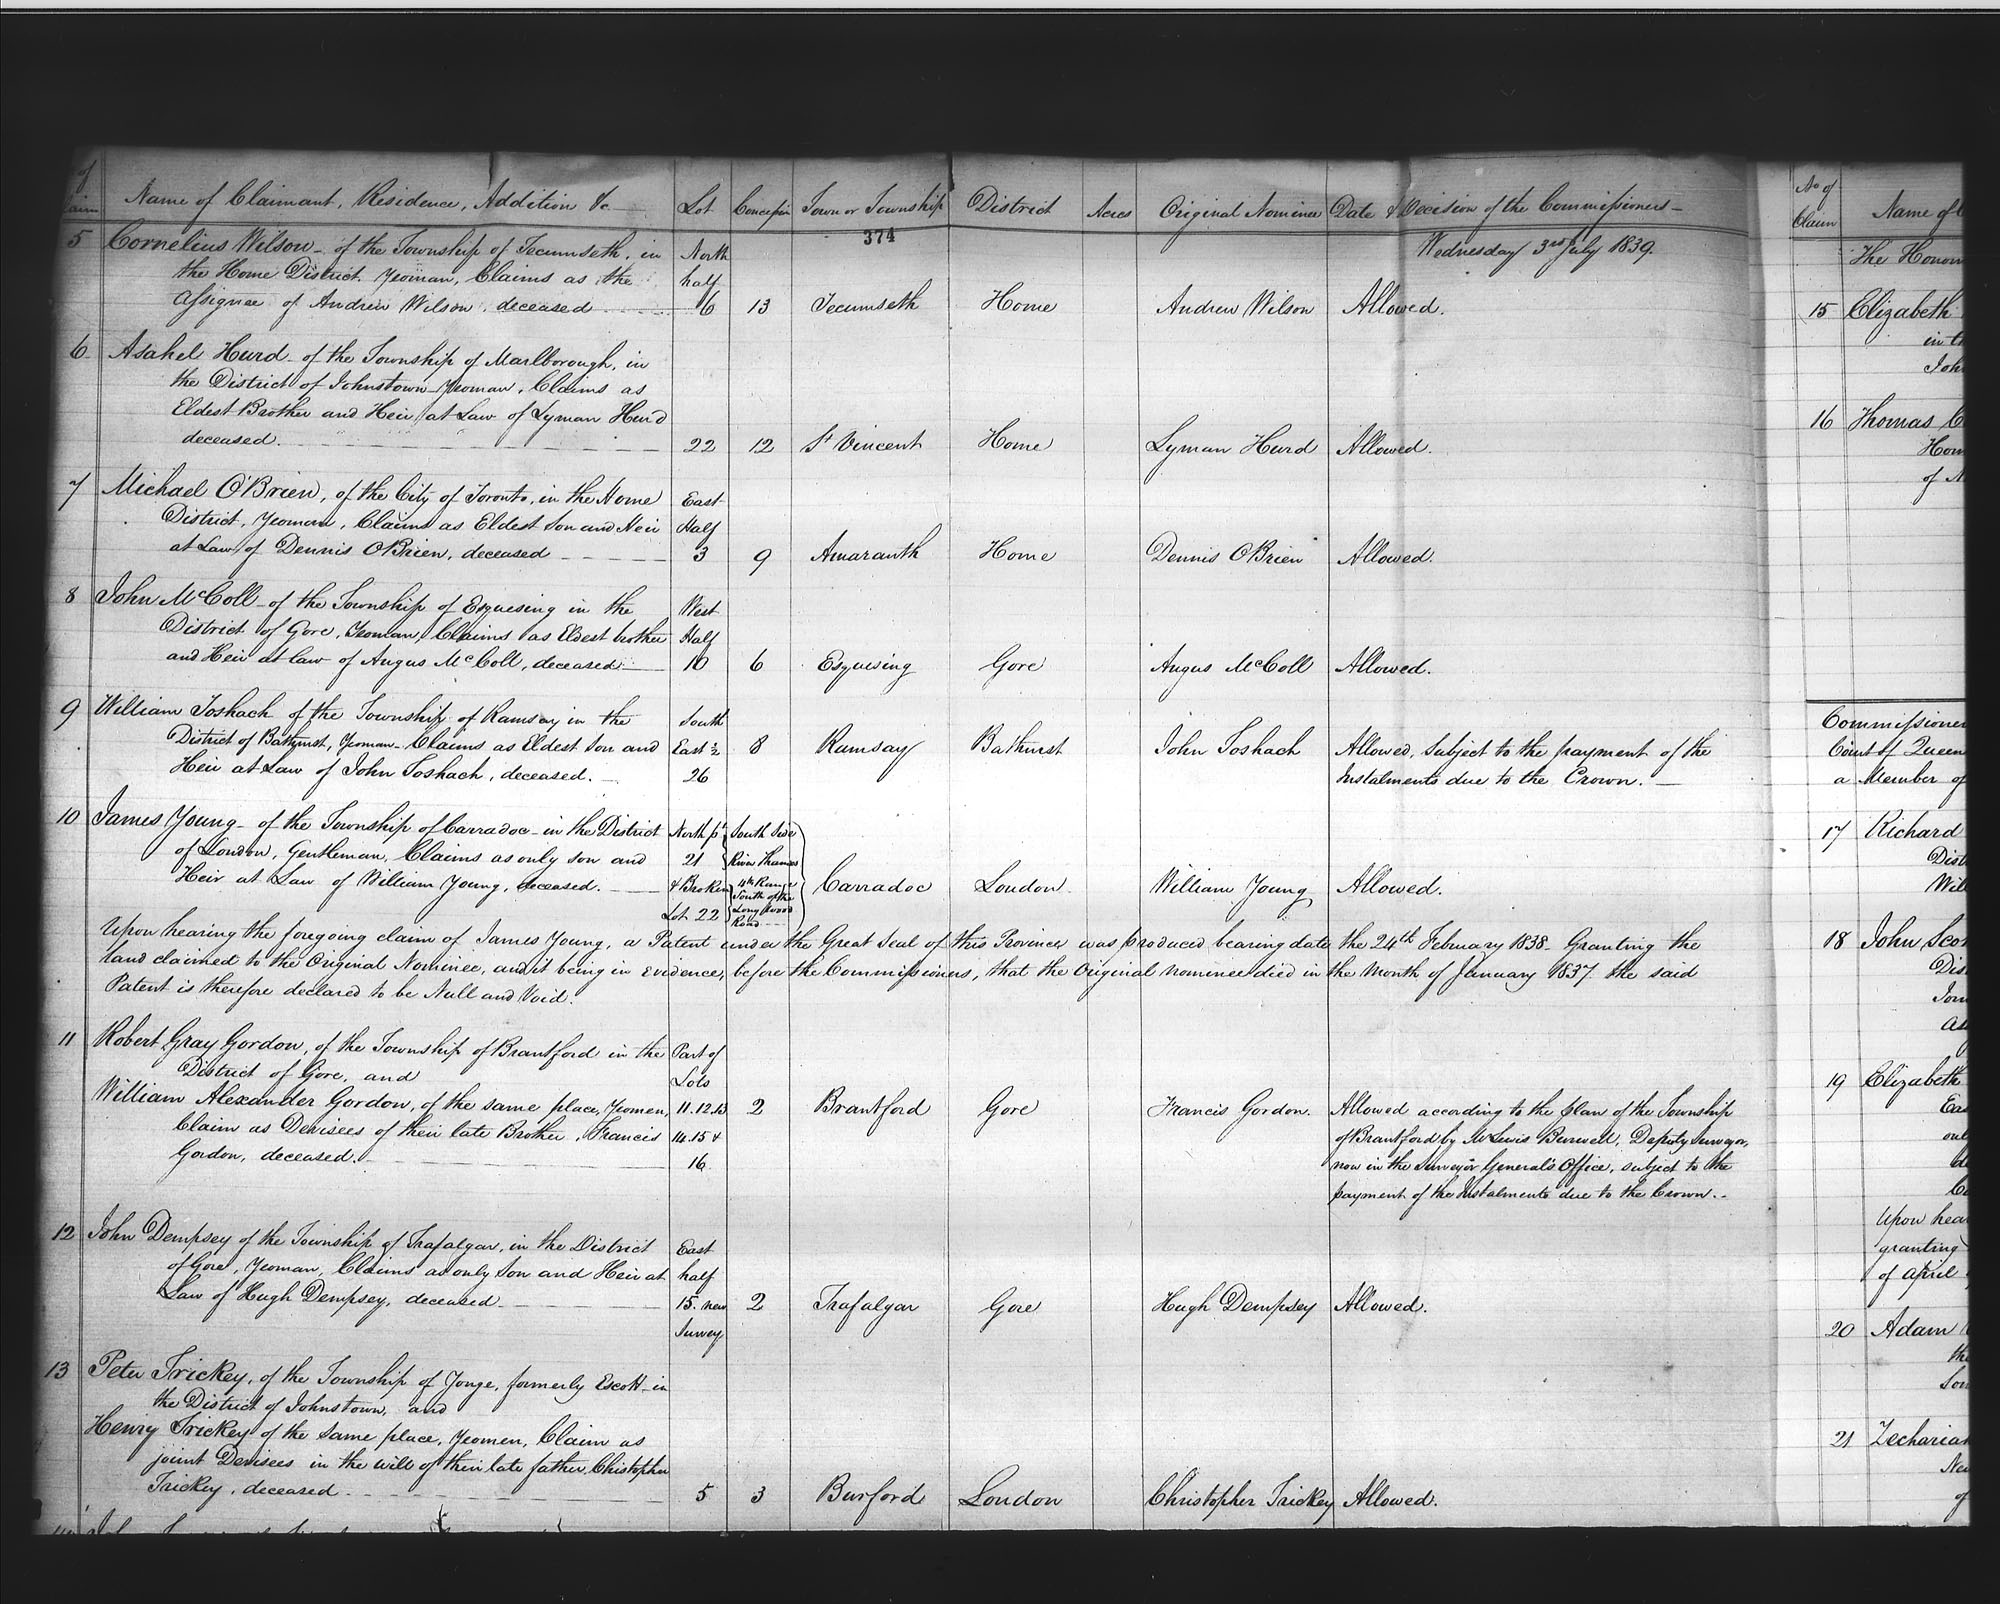 of
Name of Claimant, Residence, Addition &c. Lot Concession Town or Township District Acres Original Nominee Date & Decision of the Commissioners
374
Wednesday 3rd July 1839.
5 Cornelius Wilson of the Township of Tecumseth, in North
the Home District. Yeoman, Claims as the half
Assignee of Andrew Wilson, deceased 6 13 Tecumseth Home Andrew Wilson Allowed.
6 Asahel Hurd of the Township of Marlborough, in
the District of Johnstown Yeoman, Claims as
Eldest Brother and Heir at Law of Lyman Hurd
deceased. 22 12 St Vincent Home Lyman Hurd Allowed.
7 Michael O'Brien, of the City of Toronto, in the Home East
District, Yeoman, Claims as Eldest Son and Heir Half
at Law of Dennis O'Brien, deceased 3 9 Amaranth Home Dennis O'Brien Allowed.
8 John McColl of the Township of Esquesing in the West
District of Gore, Yeoman, Claims as Eldest brother Half
and Heir at law of Angus McColl, deceased 10 6 Esquesing Gore Angus McColl Allowed.
9 William Toshach of the Township of Ramsay in the South
District of Bathurst, Yeoman Claims as Eldest Son and East ½ 8 Ramsay Bathurst John Toshach Allowed, subject to the payment of the
Heir at Law of John Toshach, deceased. 26 Instalments due to the Crown.
10 James Young of the Township of Carradoc in the District North pt South Side
of London, Gentleman, Claims as only son and 21 River Thames
Heir at Law of William Young, deceased. & Broken 4th Range Carradoc London William Young Allowed.
South of the
Lot 22 Long Wood
Road
Upon hearing the foregoing claim of James Young, a Patent under the Great Seal of this Province was produced bearing date the 24th February 1838 Granting the
land claimed to the Original Nominee, and it being in evidence, before the Commissioners, that the Original Nominee died in the Month of January 1837 the said
Patent is therefore declared to be Null and Void.
11 Robert Gray Gordon, of the Township of Brantford in the Part of
District of Gore, and Lots
William Alexander Gordon, of the same place, Yeomen, 11.12.13 2 Brantford Gore Francis Gordon. Allowed according to the plan of the Township
Claim as Devisees of their late Brother, Francis 14.15 & of Brantford by Mr Lewis Burwell, Deputy Surveyor,
Gordon, deceased. 16 now in the Surveyor General's Office, subject to the
payment of the Instalments due to the Crown.
12 John Dempsey of the Township of Trafalgar, in the District East
of Gore, Yeoman, Claims as only Son and Heir at half
Law of Hugh Dempsey, deceased 15. new 2 Trafalgar Gore Hugh Dempsey Allowed.
Survey
13 Peter Trickey, of the Township of Yonge, formerly Escott in
the District of Johnstown, and
Henry Trickey of the same place, Yeomen, Claim as
joint Devisees in the will of their late father, Chistopher
Trickey, deceased 5 3 Burford London Christopher Trickey Allowed.
No of
Claim Name of
The Honor
15 Elizabeth
in t
Joh
16 Thomas
Hom
of
Commissioner
Court of Queen
a Member of
17 Richard
Dist
Wil
18 John Sco
Dis
19 Elizabeth
Eas
Upon hea
granting
of April
20 Adam
the
Son
21 Zechariah
Ne
of